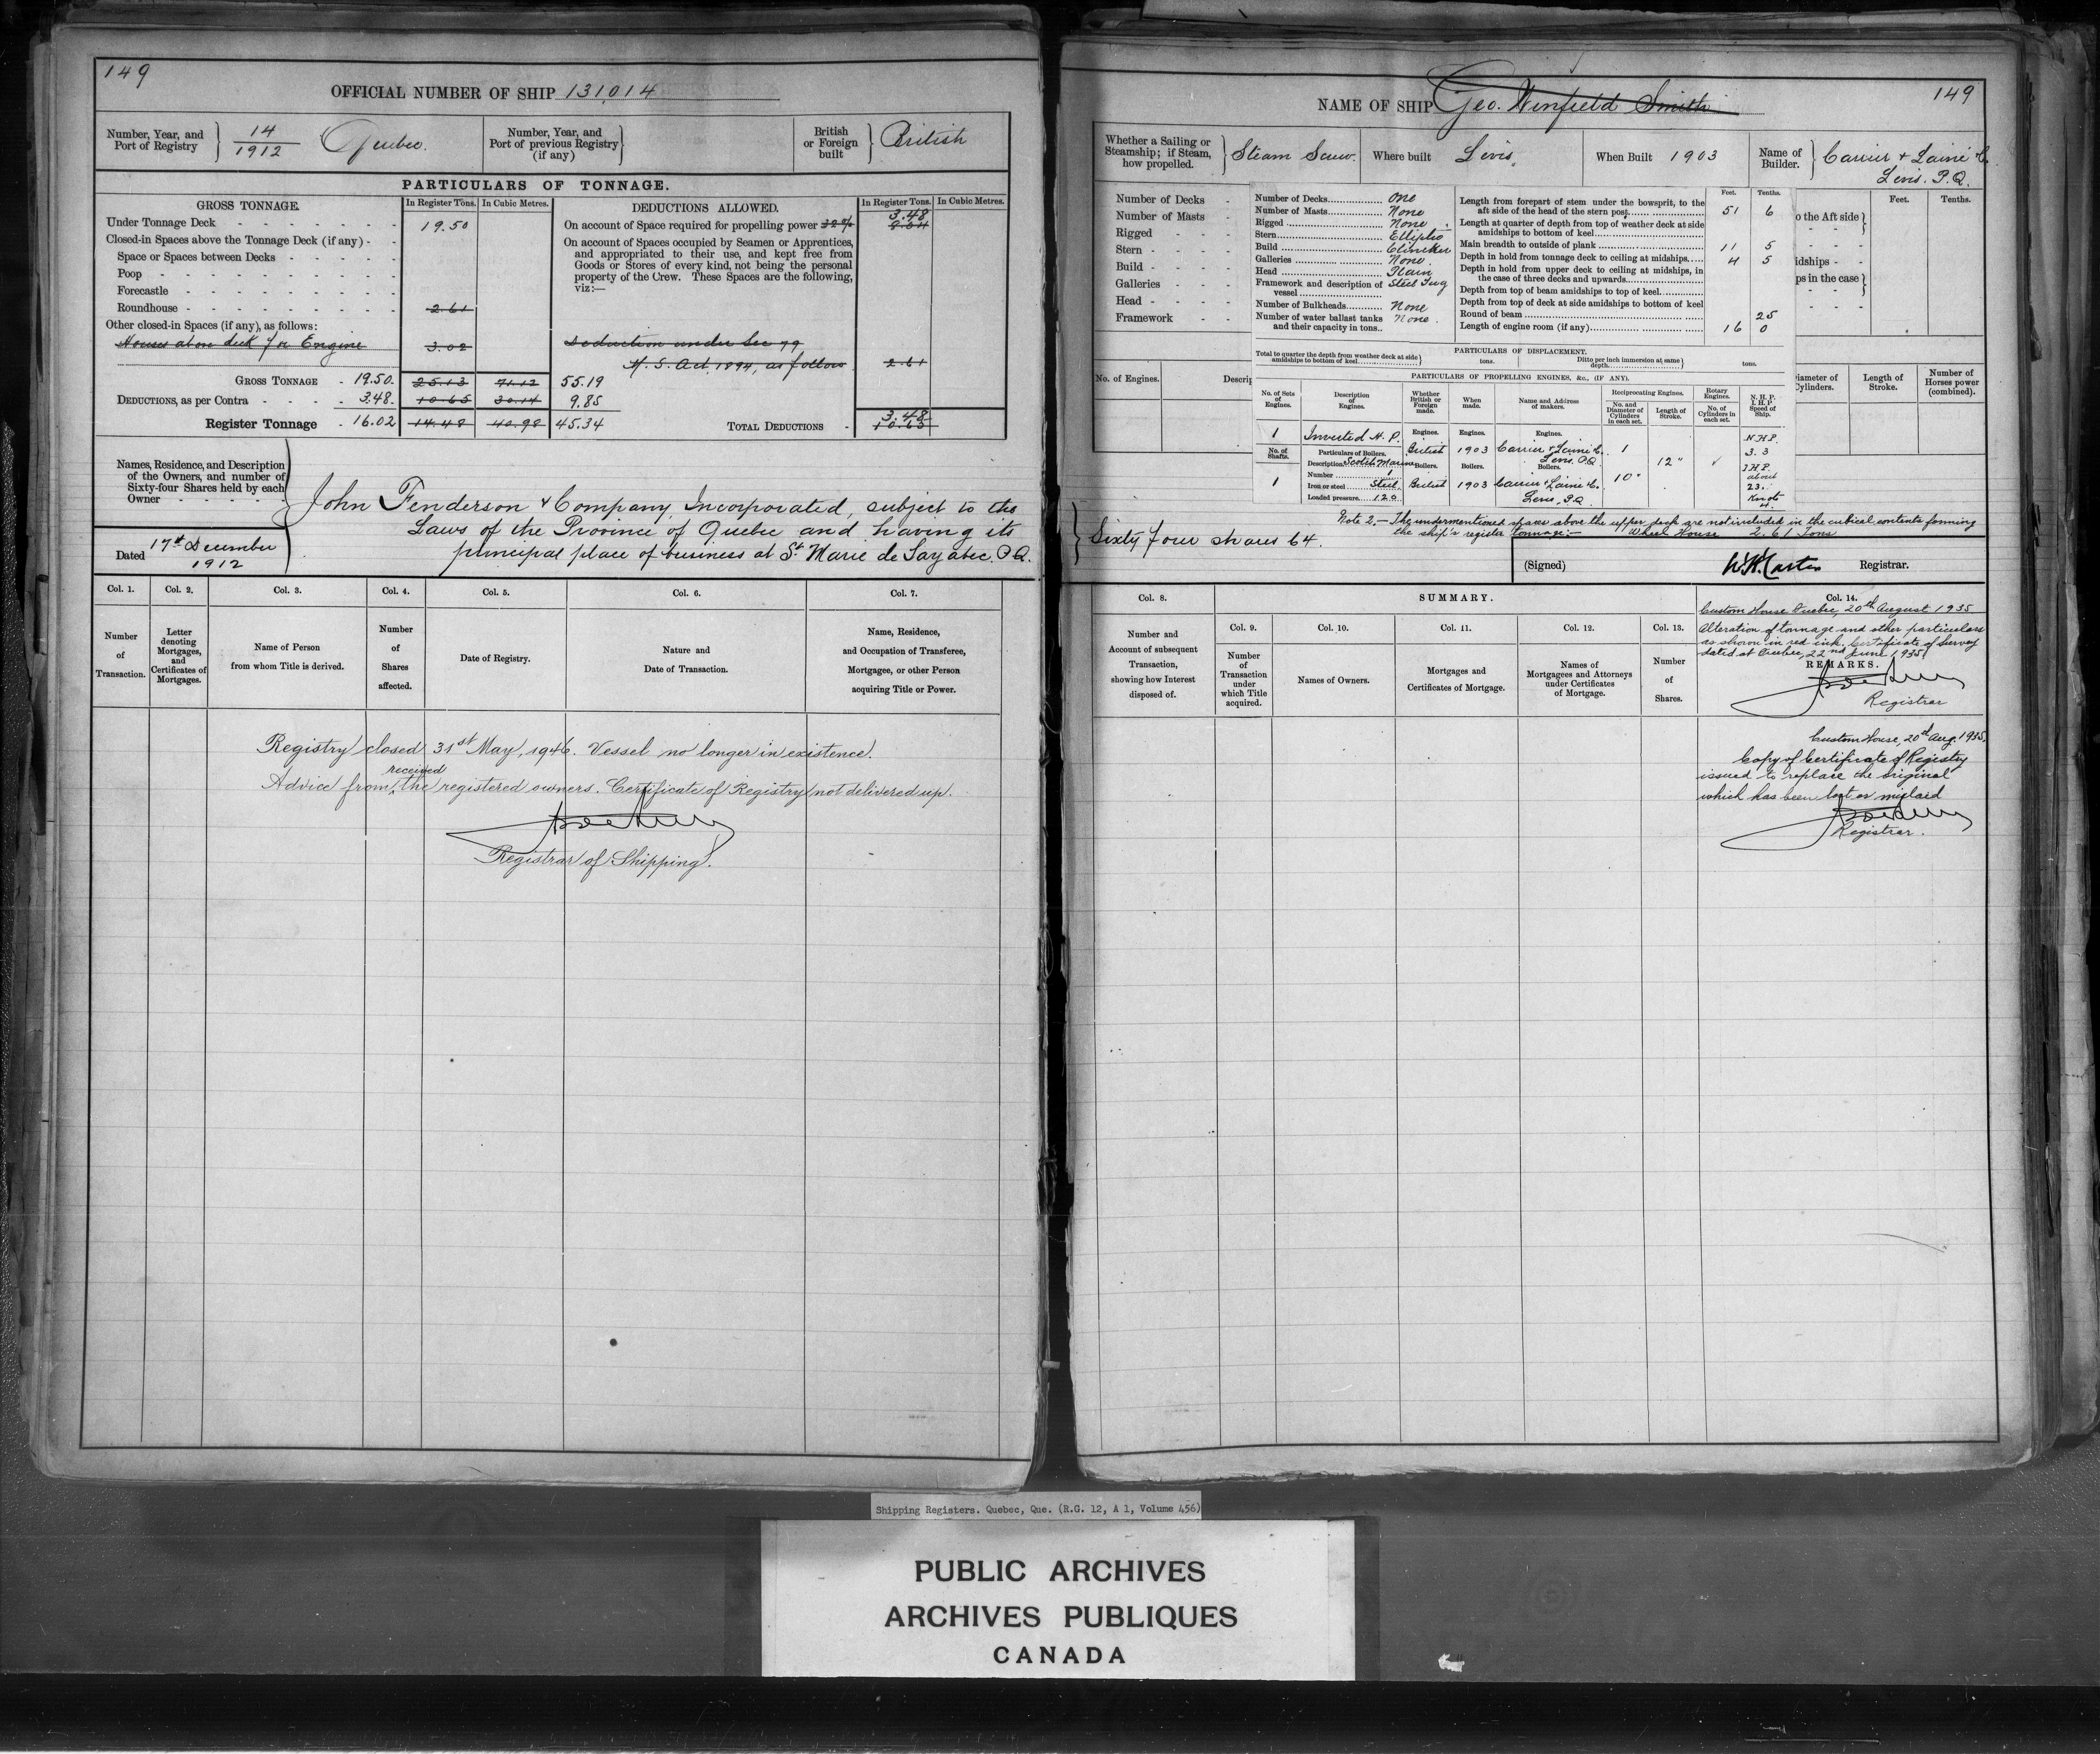 149
OFFICIAL NUMBER OF SHIP 131,014
Number, Year, and Port of Registry 14/1912 Quebec.
Number, Year, and Port of previous Registry (if any)
British or Foreign built British
PARTICULARS OF TONNAGE.
GROSS TONNAGE. In Register Tons. In Cubic Metres.
Under Tonnage Deck 19.50
Closed-in Spaces above the Tonnage Deck (if any)
Space or Spaces between Decks
Poop
Forecastle
Roundhouse 2.61
Other closed-in Spaces (if any), as follows:
Houses above deck for Engine 3.02
GROSS TONNAGE 19.50. 25.13 71.12 55.19
DEDUCTIONS, as per Contra 3.48. 10.65 30.14 9.85
Register Tonnage 16.02 14.48 40.98 45.34
DEDUCTIONS ALLOWED. In Register Tons. In Cubic Metres.
3.48
On account of Space required for propelling power 32% 8.04
On account of Spaces occupied by Seamen or Apprentices,
and appropriated to their use, and kept free from
Goods or Stores of every kind, not being the personal
property of the Crew. These Spaces are the following,
viz:—
Deduction under Sec 79
M. S. Act, 1894, as follows 2.61
3.48
TOTAL DEDUCTIONS 10.65
Names, Residence, and Description
of the Owners, and number of
Sixty-four Shares held by each
Owner
John Fenderson & Company, Incorporated, subject to the
Laws of the Province of Quebec and having its
principal place of business at St Marie de Sayabec. P.Q.
Dated 17th December
1912
Col. 1. Col. 2. Col. 3. Col. 4. Col. 5. Col. 6. Col. 7.
Number of Transaction.
Letter denoting Mortgages, and Certificates of Mortgages.
Name of Person from whom Title is derived.
Number of Shares affected.
Date of Registry.
Nature and Date of Transaction.
Name, Residence, and Occupation of Transferee, Mortgagee, or other Person acquiring Title or Power.
Registry closed 31st May, 1946. Vessel no longer in existence.
received
Advice from the registered owners. Certificate of Registry not delivered up.
Registrar of Shipping.
NAME OF SHIP Geo. Winfield Smith
149
Whether a Sailing or Steamship; if Steam, how propelled. Steam Screw.
Where built Levis.
When Built 1903
Name of Builder. Carrier & Lainé Co.
Levis. P.Q.
Number of Decks
Number of Masts
Rigged
Stern
Build
Galleries
Head
Framework
No. of Engines.
Descrip
Number of Decks One
Number of Masts None
Rigged None
Stern Elliptic
Build Clincker
Galleries None.
Head Plain
Framework and description of vessel Steel Tug
Number of Bulkheads None
Number of water ballast tanks and their capacity in tons None.
Feet. Tenths.
Length from forepart of stem under the bowsprit, to the aft side of the head of the stern post 51 6
Length at quarter of depth from top of weather deck at side amidships to bottom of keel
Main breadth to outside of plank 11 5
Depth in hold from tonnage deck to ceiling at midships 4 5
Depth in hold from upper deck to ceiling at midships, in the case of three decks and upwards
Depth from top of beam amidships to top of keel
Depth from top of deck at side amidships to bottom of keel
Round of beam 25
Length of engine room (if any) 16 0
PARTICULARS OF DISPLACEMENT.
Total to quarter the depth from weather deck at side amidships to bottom of keel tons.
Ditto per inch immersion at same depth tons.
PARTICULARS OF PROPELLING ENGINES, &c., (IF ANY).
No. of Sets of Engines.
Description of Engines.
Whether British or Foreign made.
When made.
Name and Address of makers.
Reciprocating Engines.
No. and Diameter of Cylinders in each set.
Length of Stroke.
Rotary Engines.
No. of Cylinders in each set.
N. H. P.
I. H. P.
Speed of Ship.
Engines. Engines. Engines.
1 Inverted H. P. British 1903 Carrier & Lainé Co. Levis. P.Q. 1 12"
N.H.P.
3.3
I.H.P.
about
23.
Knots
4.
No. of Shafts. 1
Particulars of Boilers.
Description Scotch Marine
Number 1
Iron or steel Steel
Loaded pressure 120
Boilers. Boilers. Boilers.
British 1903 Carrier & Lainé Co. 10"
Levis, P.Q.
Feet. Tenths.
o the Aft side
idships
ps in the case
iameter of Cylinders.
Length of Stroke.
Number of Horses power (combined).
Note 2.— The undermentioned spaces above the upper deck are not included in the cubical contents forming
the ship's register tonnage:— Wheel House 2.61 Tons
Sixty four shares 64.
(Signed) W.H. Carter Registrar.
Col. 8.
SUMMARY.
Col. 14.
Custom House Quebec, 20th August 1935
Alteration of tonnage and other particulars
as shown in red ink. Certificate of Survey
dated at Quebec, 22nd June, 1935.
REMARKS.
Registrar
Number and Account of subsequent Transaction, showing how Interest disposed of.
Col. 9. Col. 10. Col. 11. Col. 12. Col. 13.
Number of Transaction under which Title acquired.
Names of Owners.
Mortgages and Certificates of Mortgage.
Names of Mortgagees and Attorneys under Certificates of Mortgage.
Number of Shares.
Custom House, 20th Aug. 1935.
Copy of Certificate of Registry
issued to replace the original
which has been lost or mislaid
Registrar.
Shipping Registers. Quebec, Que. (R.G. 12, A 1, Volume 456)
PUBLIC ARCHIVES
ARCHIVES PUBLIQUES
CANADA